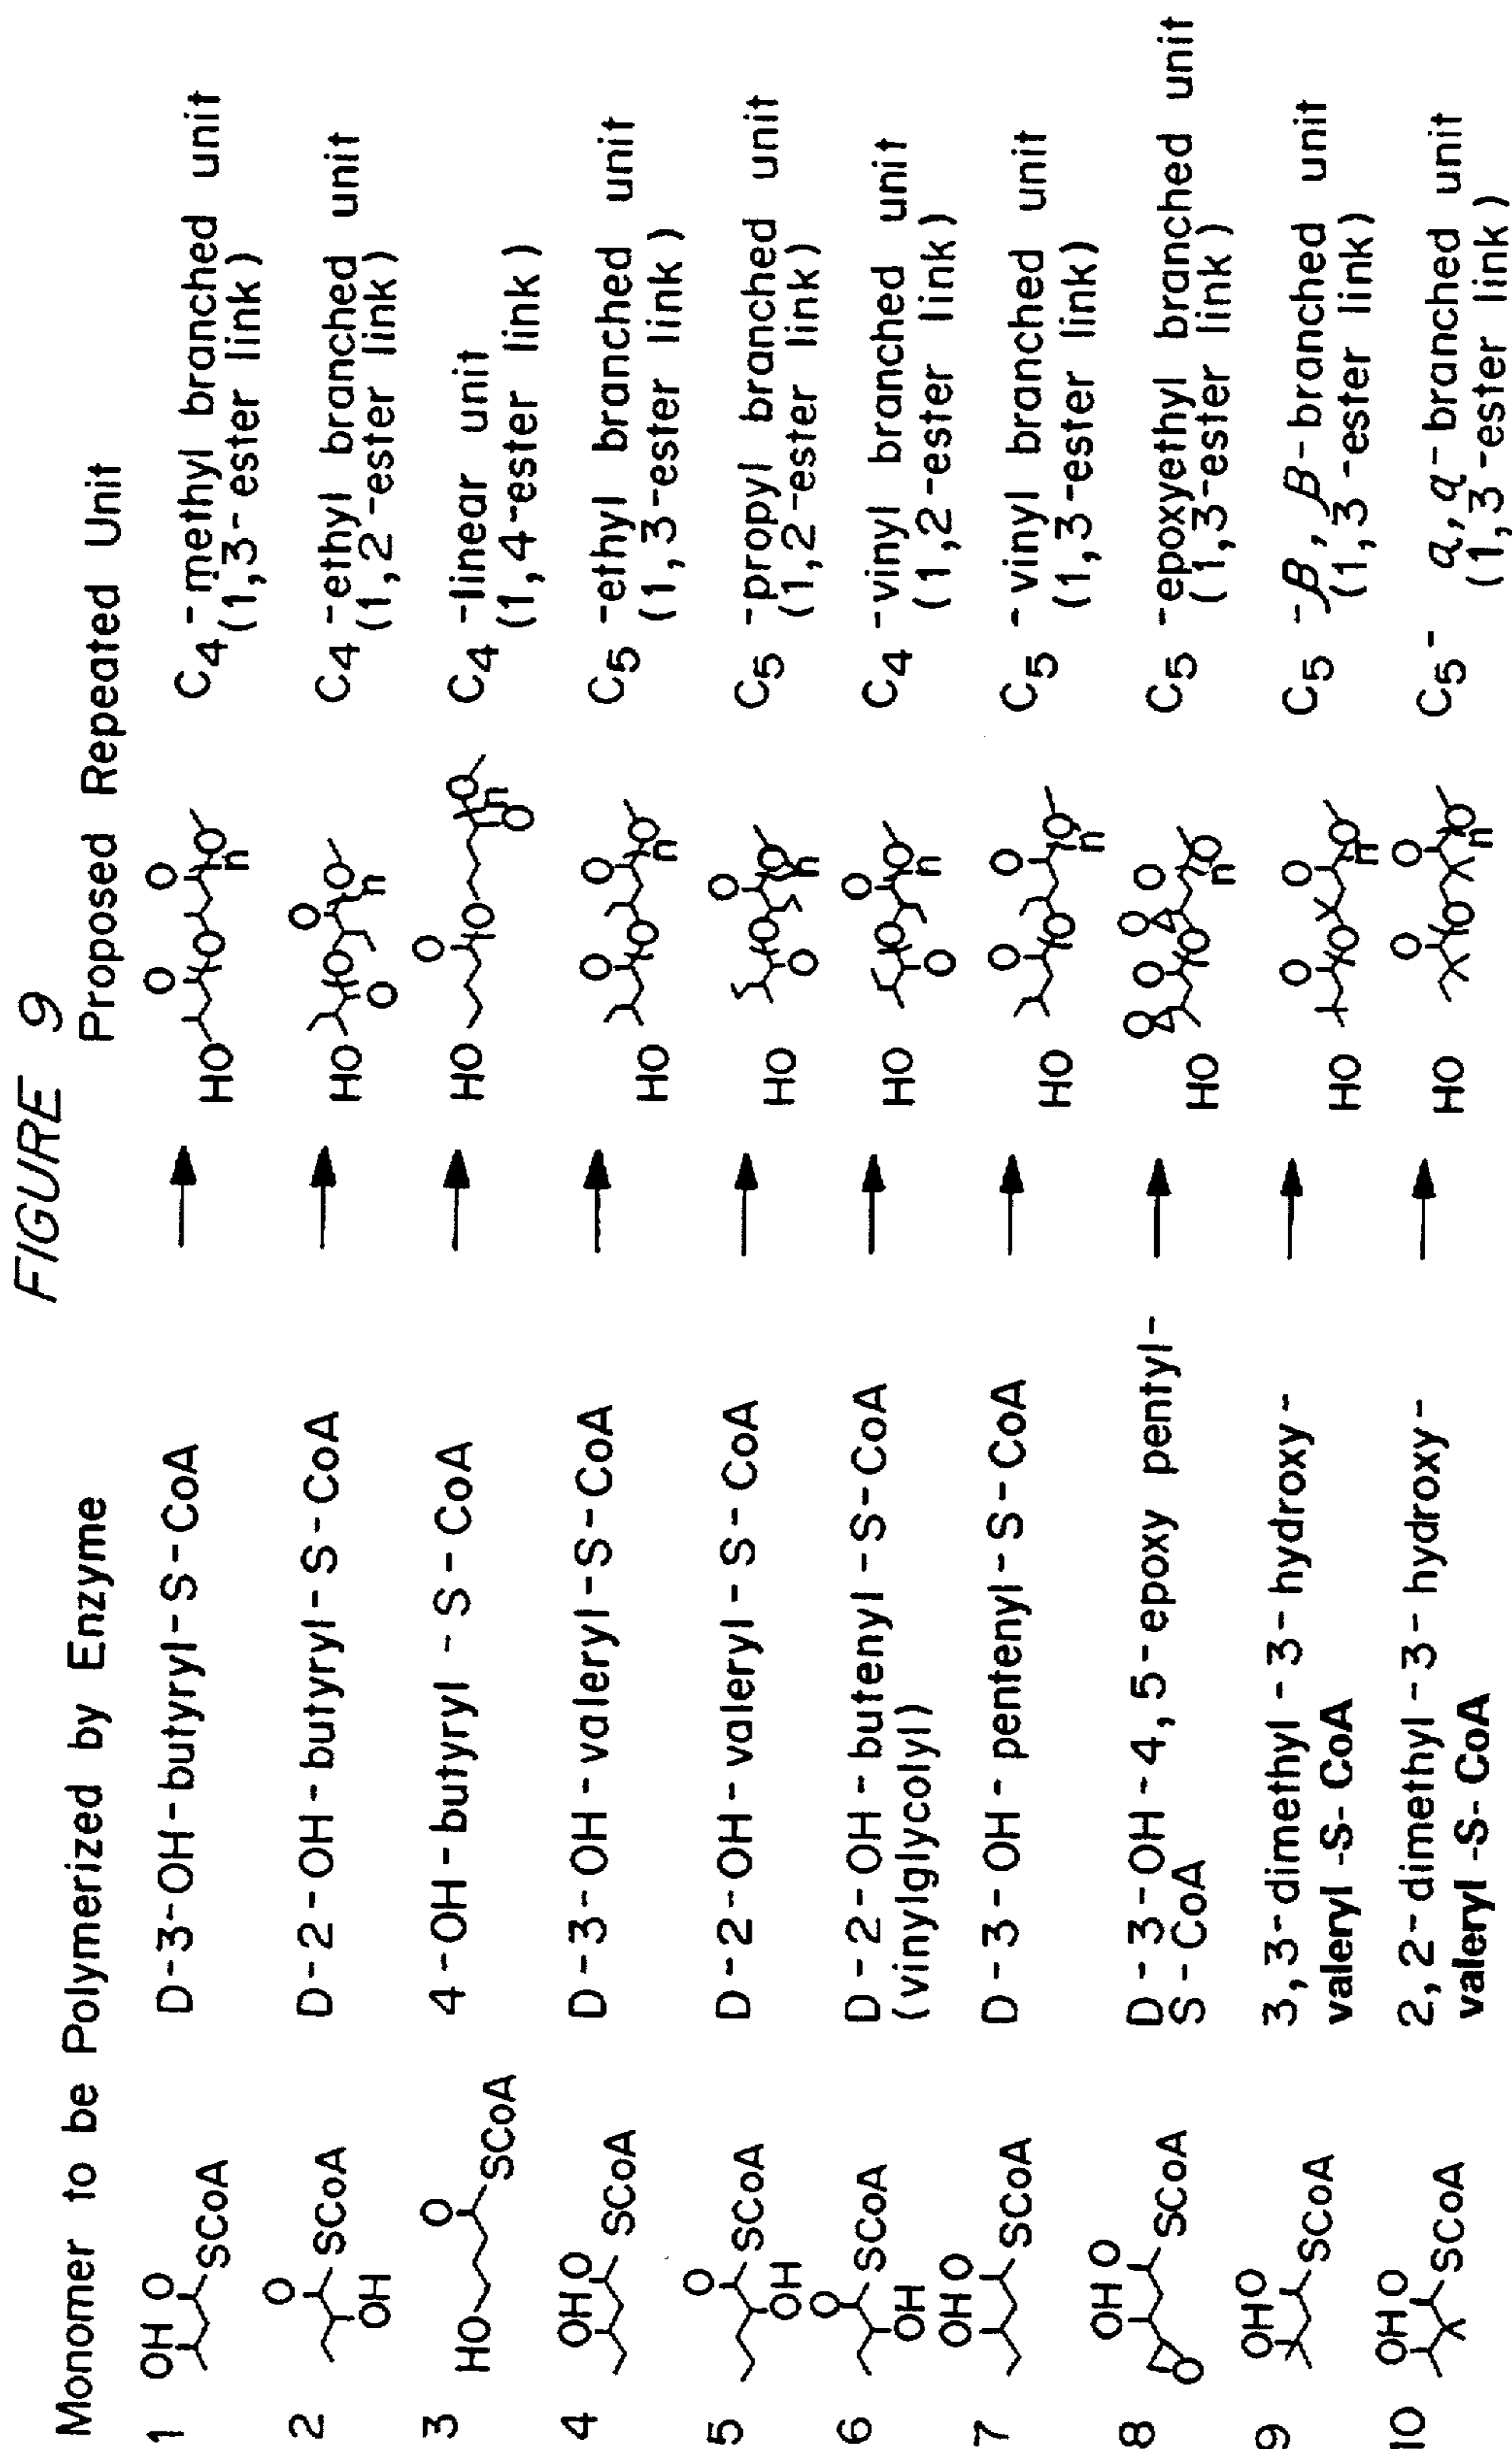 FIGURE 9
Monomer to be Polymerized by Enzyme
Proposed Repeated Unit
1
OH O
SCoA
D-3-OH-butyryl-S-CoA
O O
HO O O n
C4-methyl branched unit
(1,3-ester link)
2
O
SCoA
OH
D-2-OH-butyryl-S-CoA
O
HO O O n
O
C4-ethyl branched unit
(1,2-ester link)
3
O
HO SCoA
4-OH-butyryl-S-CoA
O
HO O O n
O
C4-linear unit
(1,4-ester link)
4
OH O
SCoA
D-3-OH-valeryl-S-CoA
O O
HO O O n
C5-ethyl branched unit
(1,3-ester link)
5
O
SCoA
OH
D-2-OH-valeryl-S-CoA
O
HO O O n
O
C5-propyl branched unit
(1,2-ester link)
6
O
SCoA
OH
D-2-OH-butenyl-S-CoA
(vinylglycolyl)
O
HO O O n
O
C4-vinyl branched unit
(1,2-ester link)
7
OH O
SCoA
D-3-OH-pentenyl-S-CoA
O O
HO O O n
C5-vinyl branched unit
(1,3-ester link)
8
OH O
SCoA
O
D-3-OH-4,5-epoxy pentyl-
S-CoA
O O O O
HO O O n
C5-epoxyethyl branched unit
(1,3-ester link)
9
OH O
SCoA
3,3-dimethyl-3-hydroxy-
valeryl-S-CoA
O O
HO O O n
C5-β,β-branched unit
(1,3-ester link)
10
OH O
SCoA
2,2-dimethyl-3-hydroxy-
valeryl-S-CoA
O O
HO O O n
C5-α,α-branched unit
(1,3-ester link)